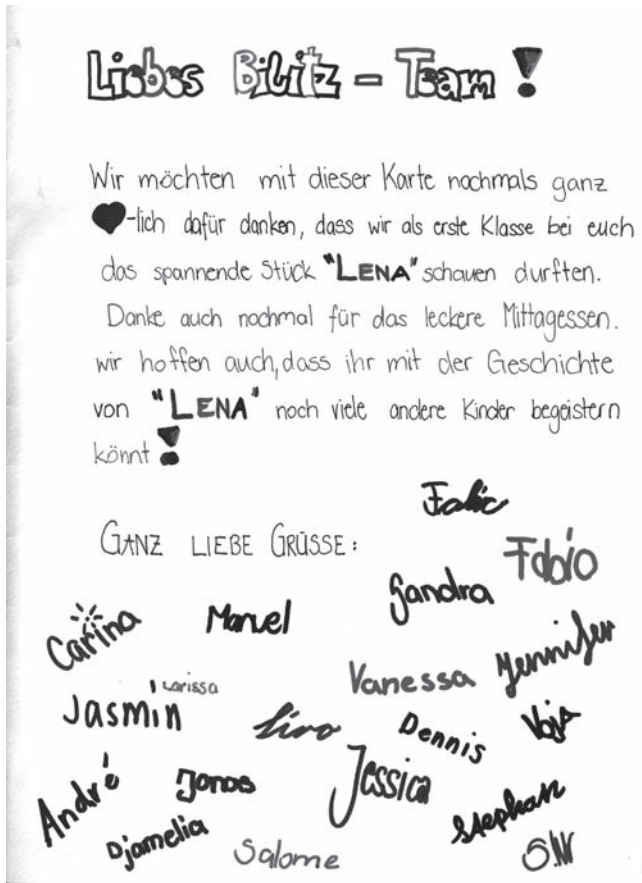 Liebes Bilitz - Team!
Wir möchten mit dieser Karte nochmals ganz
♥-lich dafür danken, dass wir als erste Klasse bei euch
das spannende Stück "LENA" schauen durften.
Danke auch nochmal für das leckere Mittagessen.
wir hoffen auch, dass ihr mit der Geschichte
von "LENA" noch viele andere Kinder begeistern
könnt!
GANZ LIEBE GRÜSSE:
Fabio
Sandra
Carina
Manuel
Jennifer
Vanessa
Larissa
Jasmin
Siro
Dennis
Voja
André
Jonas
Jessica
Stephan
Djamelia
Salome